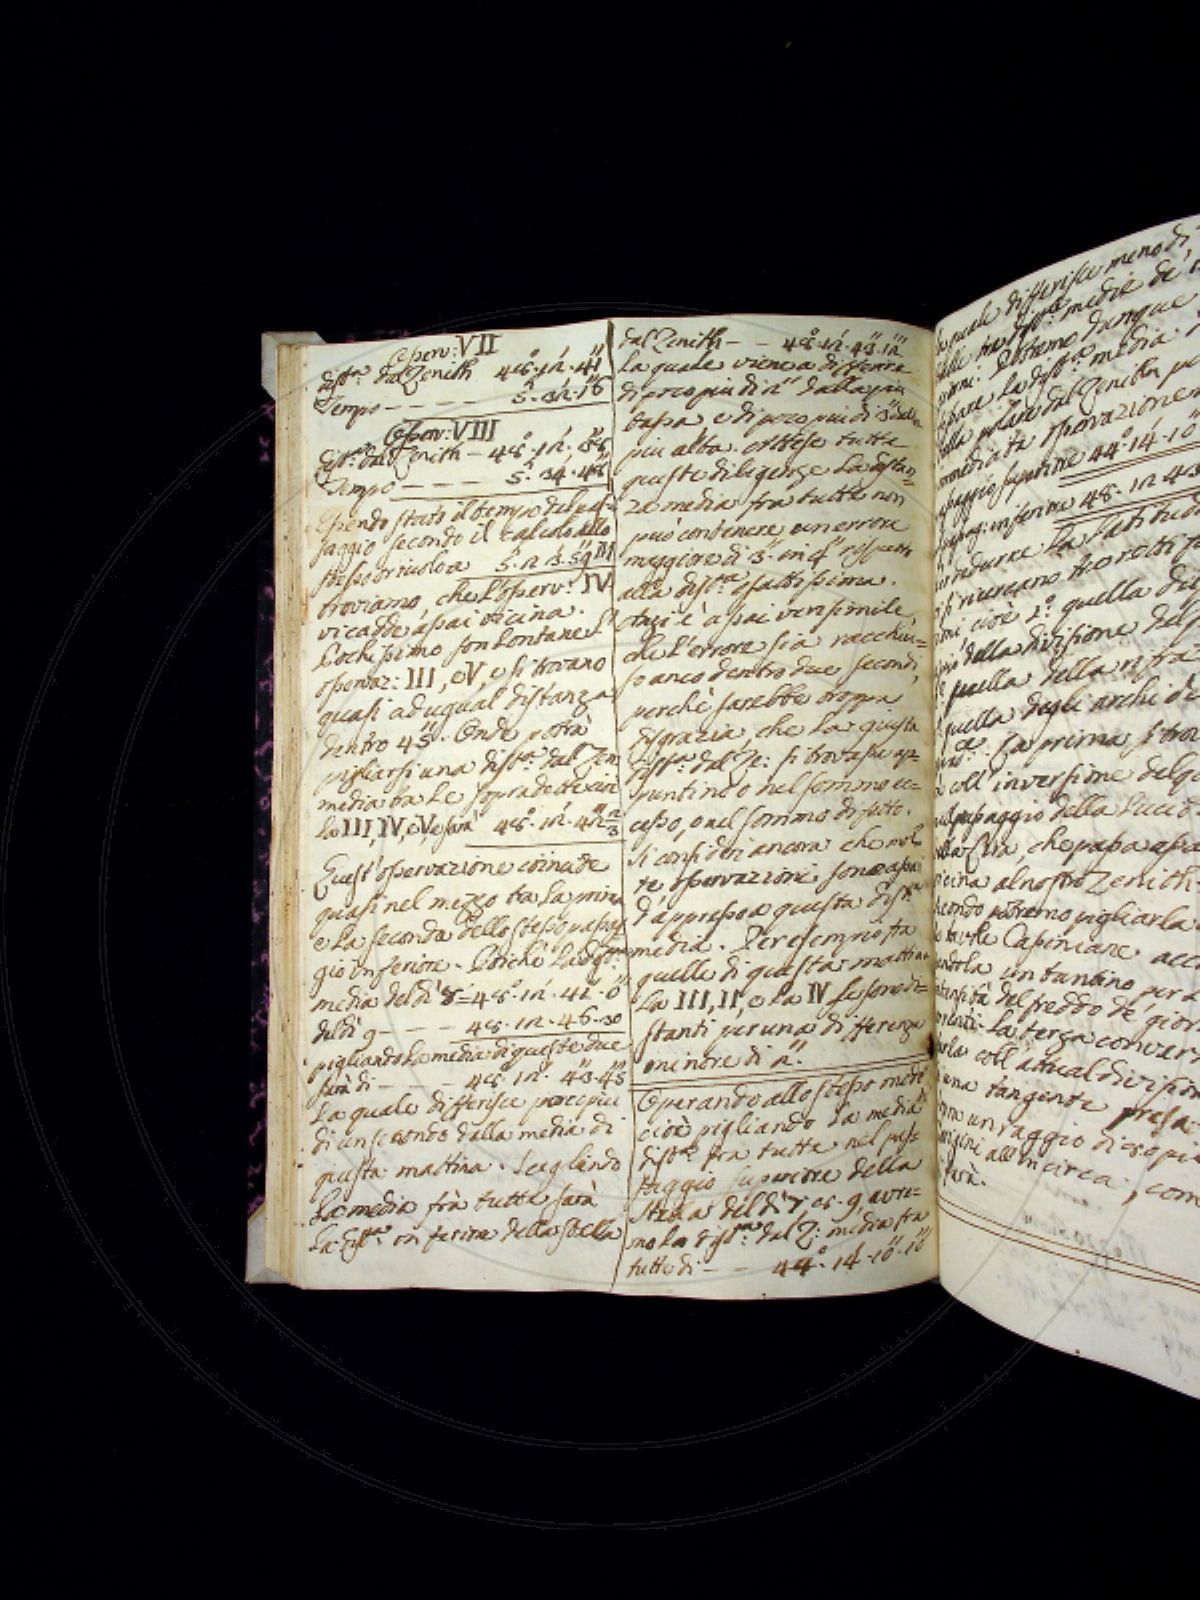 Osserv: VII
dist.ª dal Zenith 48°. 12'. 41''
Tempo - - - - 5. 32. 16
Osserv: VIII
dist.ª dal Zenith - 48°. 12'.
Tempo - - - - 5. 34. 48
Essendo stato il tempo del pas=
saggio secondo il calcolo allo
stesso oriuolo a 5. 2 13. 59
troviamo, che l'osserv.ⁿ IV
vi cadde assai vicina.
Pochissimo son lontane l'
osservaz: III, e V, e si trovano
quasi ad ugual distanza
dentro 45''. Onde potrà
pigliarsi una dist.ª dal Zen
media tra le sopradette cioè
la III, IV, e V, e sarà 48°. 12'. 42'' 2/3
Quest'osservazione coincide
quasi nel mezzo tra la prima
e la seconda dello stesso passag
gio inferiore. Poichè la dist.ª
media del dì 8 = 48°. 12'. 41''. 0
del dì 9 - - - - 48. 12. 46. 30
pigliando la media di queste due
sarà di - - - - 48°. 12'. 43''. 45
La quale differisce poco più
di un secondo dalla media di
questa mattina. Scegliendo
la media frà tutte sarà
la dist.ª inferiore della Stella
dal Zenith - - 48°. 12'. 43''. 12'''
la quale viene a differire
di poco piu di 2'' dalla più
bassa e di poco piu di 3'' dalla
piu alta. Attese tutte
queste diligenze la distan=
za media fra tutte non
può contenere un errore
maggiore di 3'' in 4'' rispetto
alla dist.ª esattissima.
Anzi è assai verisimile,
che l'errore sia racchiu=
so anco dentro due secondi,
perchè sarebbe troppa
disgrazia, che la giusta
dist.ª dal Ze: si trovasse ap=
puntino o nel sommo ec=
cesso, o nel sommo difetto.
Si consideri ancora che mol
te osservazioni sono assai
d'appresso a questa dist.ª
media. Per esempio fra
quelle di questa mattina
la III, II, e la IV le sono di=
stanti per una differenza
minore di 2''.
Operando allo stesso modo
cioè pigliando la media
dist.ª fra tutte nel pas=
saggio superiore della
Stella del dì 7, 8. 9, avre=
mo la dist.ª dal Z: media fra
tutte di - - 44°. 14'. 10''. 10'''
la quale differisce meno di
dist.ª medie de'
giorni. Potremo dunque
la dist.ª media
polare dal Zenith
immediate osservazione
passaggio superiore 44°. 14'. 10''
passag: inferiore 48. 12 43
dedurne la Latitudi
si ricercano tre correttioni
cioè 1.º quella di
della divisione del
quella della rifra
quella degli archi di
La prima si tro
coll'inversione del
passaggio della Lucida
della Lira, che passa assai
vicina al nostro Zenith
secondo potremo pigliarla
tavole Cassiniane
un tantino per
intensità del freddo de' gior
La terza
coll'attual division
una tangente presa
un raggio di
all'incirca, com
farà.